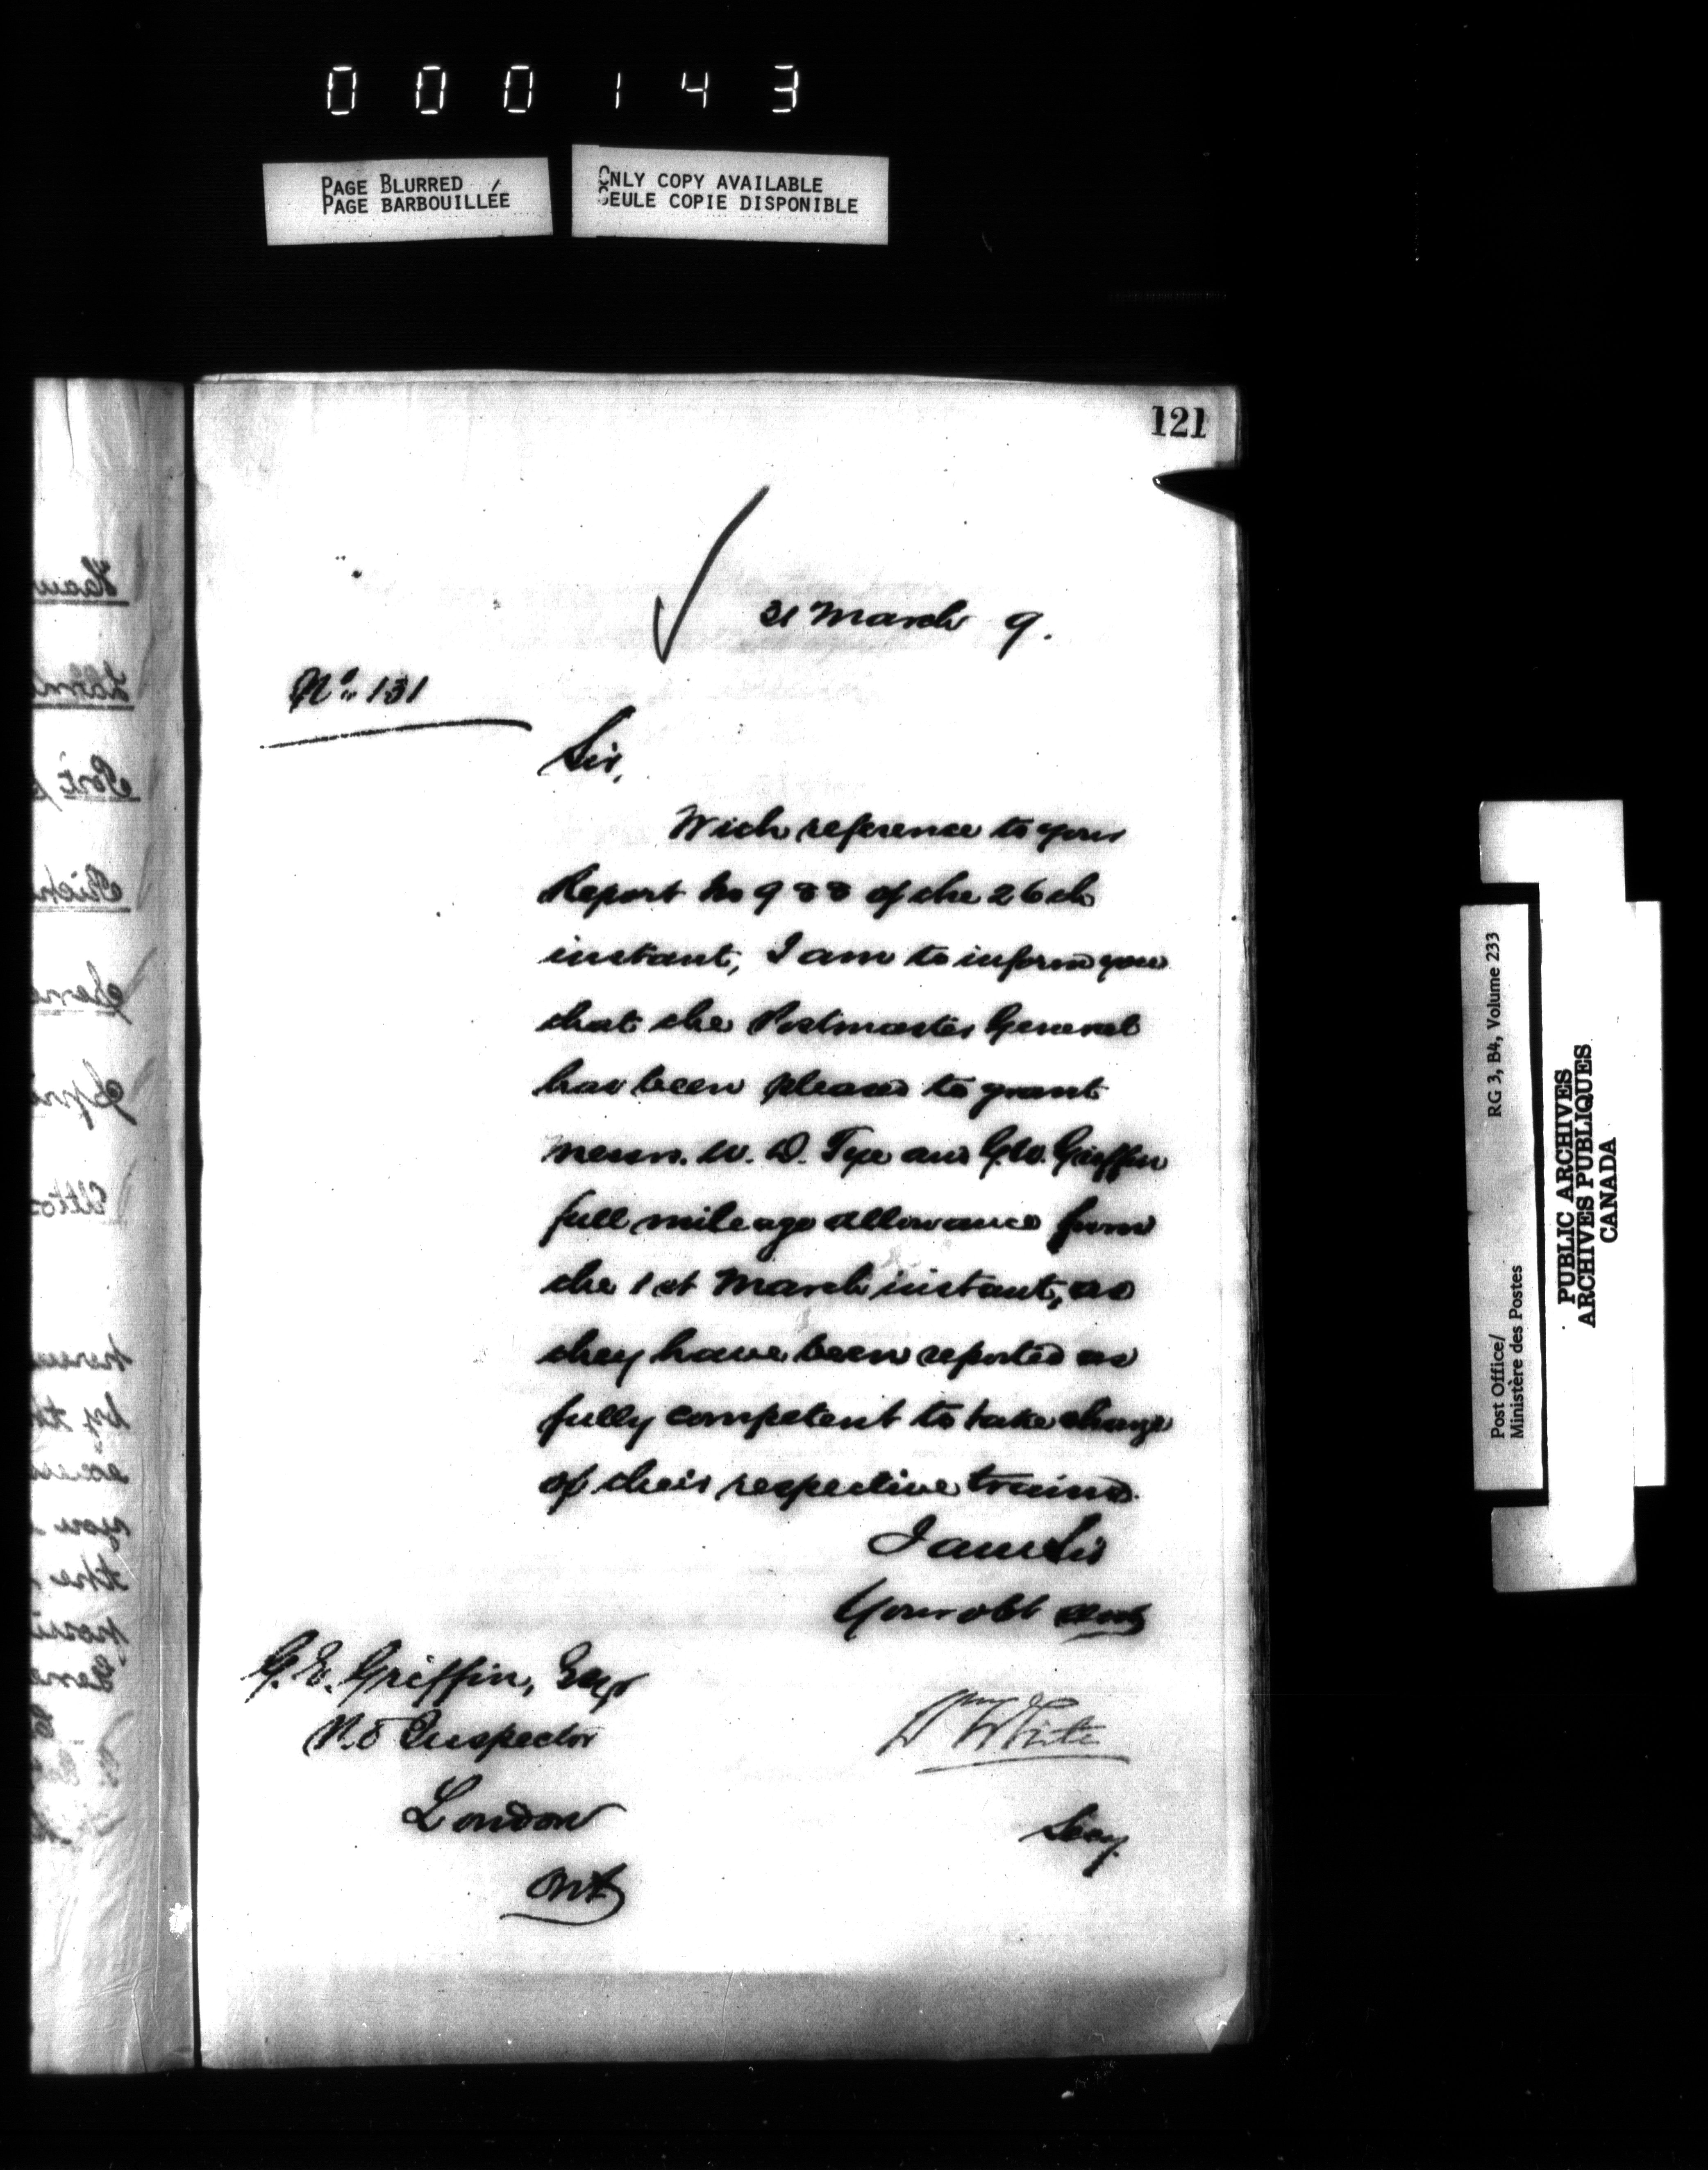 000143
PAGE BLURRED
PAGE BARBOUILLÉE
ONLY COPY AVAILABLE
SEULE COPIE DISPONIBLE
121
31 March 9.
No. 131
Sir,
With reference to your
Report No 988 of the 26th
instant, I am to inform you
that the Postmaster General
has been pleased to grant
Messrs. W. D. Tye and G.W. Griffin
full mileage allowance from
the 1st March instant, as
they have been reported as
fully competent to take charge
of their respective trains.
I am Sir
Your obt Servt
G. E. Griffin, Esqr
P.O Inspector
London
Ont
Wm White
Secy.
RG 3, B4, Volume 233
Post Office/
Ministère des Postes
PUBLIC ARCHIVES
ARCHIVES PUBLIQUES
CANADA